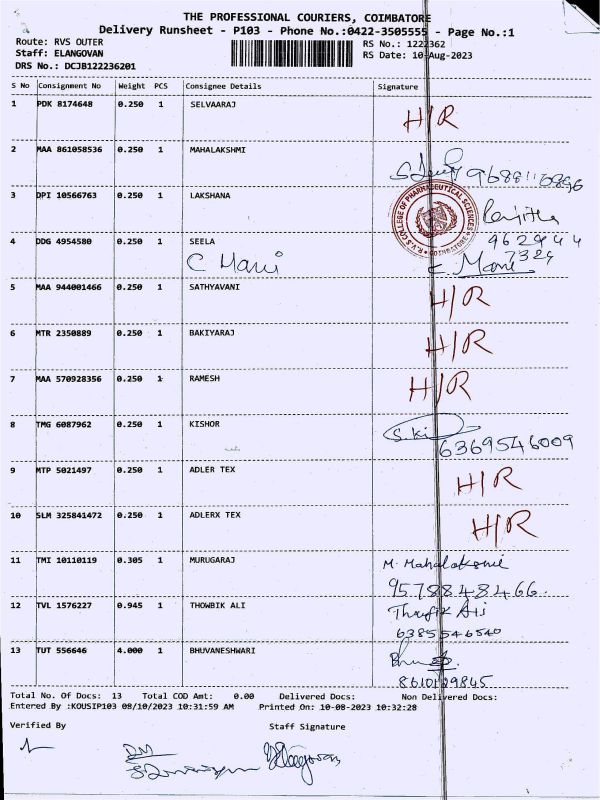 THE PROFESSIONAL COURIERS, COIMBATORE
Delivery Runsheet - P103 - Phone No.:0422-3505555 - Page No.:1
Route: RVS OUTER RS No.: 1222362
Staff: ELANGOVAN RS Date: 10-Aug-2023
DRS No.: DCJB122236201
S No Consignment No Weight PCS Consignee Details Signature
1 PDK 8174648 0.250 1 SELVAARAJ H/R
2 MAA 861058536 0.250 1 MAHALAKSHMI
3 DPI 10566763 0.250 1 LAKSHANA
R.V.S COLLEGE OF PHARMACEUTICAL SCIENCES COIMBATORE
96294 4
4 DDG 4954580 0.250 1 SEELA 7329
C Mani C Mani
5 MAA 944001466 0.250 1 SATHYAVANI H/R
6 MTR 2350889 0.250 1 BAKIYARAJ H/R
7 MAA 570928356 0.250 1 RAMESH H/R
8 TMG 6087962 0.250 1 KISHOR S.Ki
6369546009
9 MTP 5021497 0.250 1 ADLER TEX H/R
10 SLM 325841472 0.250 1 ADLERX TEX H/R
11 TMI 10110119 0.305 1 MURUGARAJ M. Mahalakshmi
9578848466.
12 TVL 1576227 0.945 1 THOWBIK ALI Thoufik Ali
6385546540
13 TUT 556646 4.000 1 BHUVANESHWARI
8610129845
Total No. Of Docs: 13 Total COD Amt: 0.00 Delivered Docs: Non Delivered Docs:
Entered By :KOUSIP103 08/10/2023 10:31:59 AM Printed On: 10-08-2023 10:32:28
Verified By Staff Signature